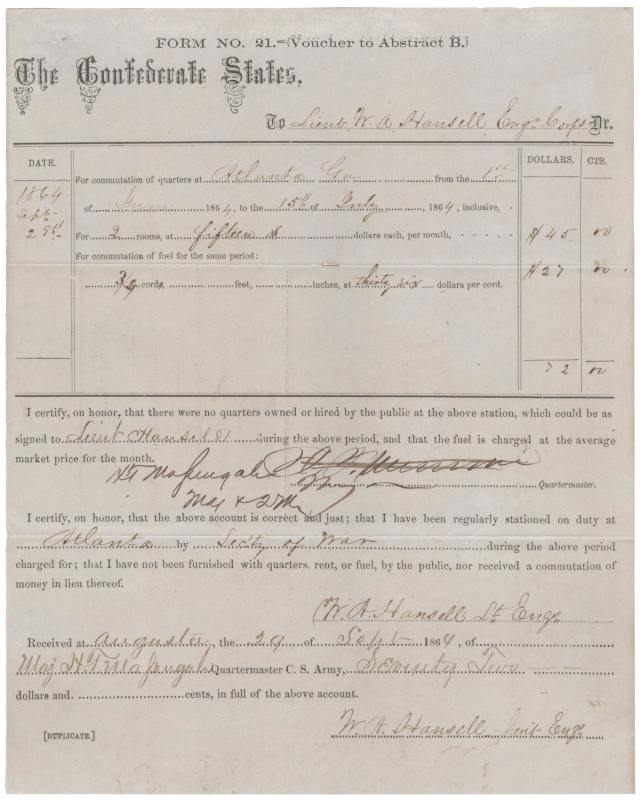 FORM NO. 21.—(Voucher to Abstract B.)
The Confederate States,
To Lieut. W. A. Hansell Engr. Corps Dr.
DATE. DOLLARS. CTS.
1864 For commutation of quarters at Atlanta Ga from the 1st
Sept. of June 1864, to the 15th of July 1864, inclusive,
29th For 2 rooms, at fifteen $ dollars each, per month, $ 45 00
For commutation of fuel for the same period:
3/4 cords, feet, inches, at thirty six dollars per cord. $ 27 00
72 00
I certify, on honor, that there were no quarters owned or hired by the public at the above station, which could be as
signed to Lieut Hansell during the above period, and that the fuel is charged at the average
market price for the month.
Maj & QM Quartermaster.
I certify, on honor, that the above account is correct and just; that I have been regularly stationed on duty at
Atlanta by Secty of War during the above period
charged for; that I have not been furnished with quarters. rent, or fuel, by the public, nor received a commutation of
money in lieu thereof.
W. A. Hansell Lt Engr
Received at Augusta, the 29 of Sept 1864, of
Maj Quartermaster C. S. Army, Seventy Two
dollars and cents, in full of the above account.
W. A. Hansell Lieut Engr
[DUPLICATE.]